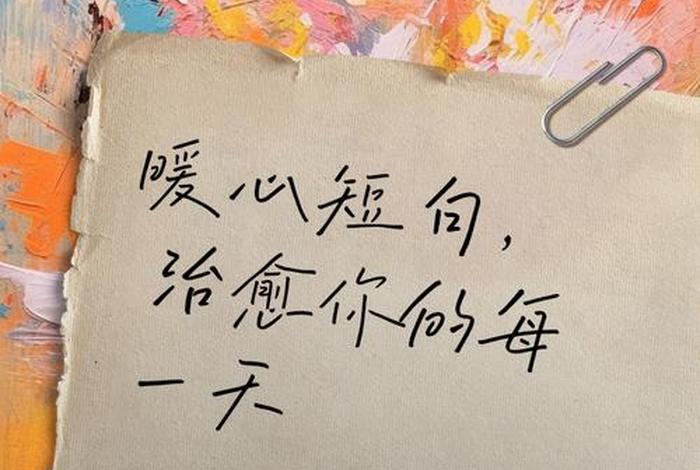 暖心短句，
治愈你的每
一天